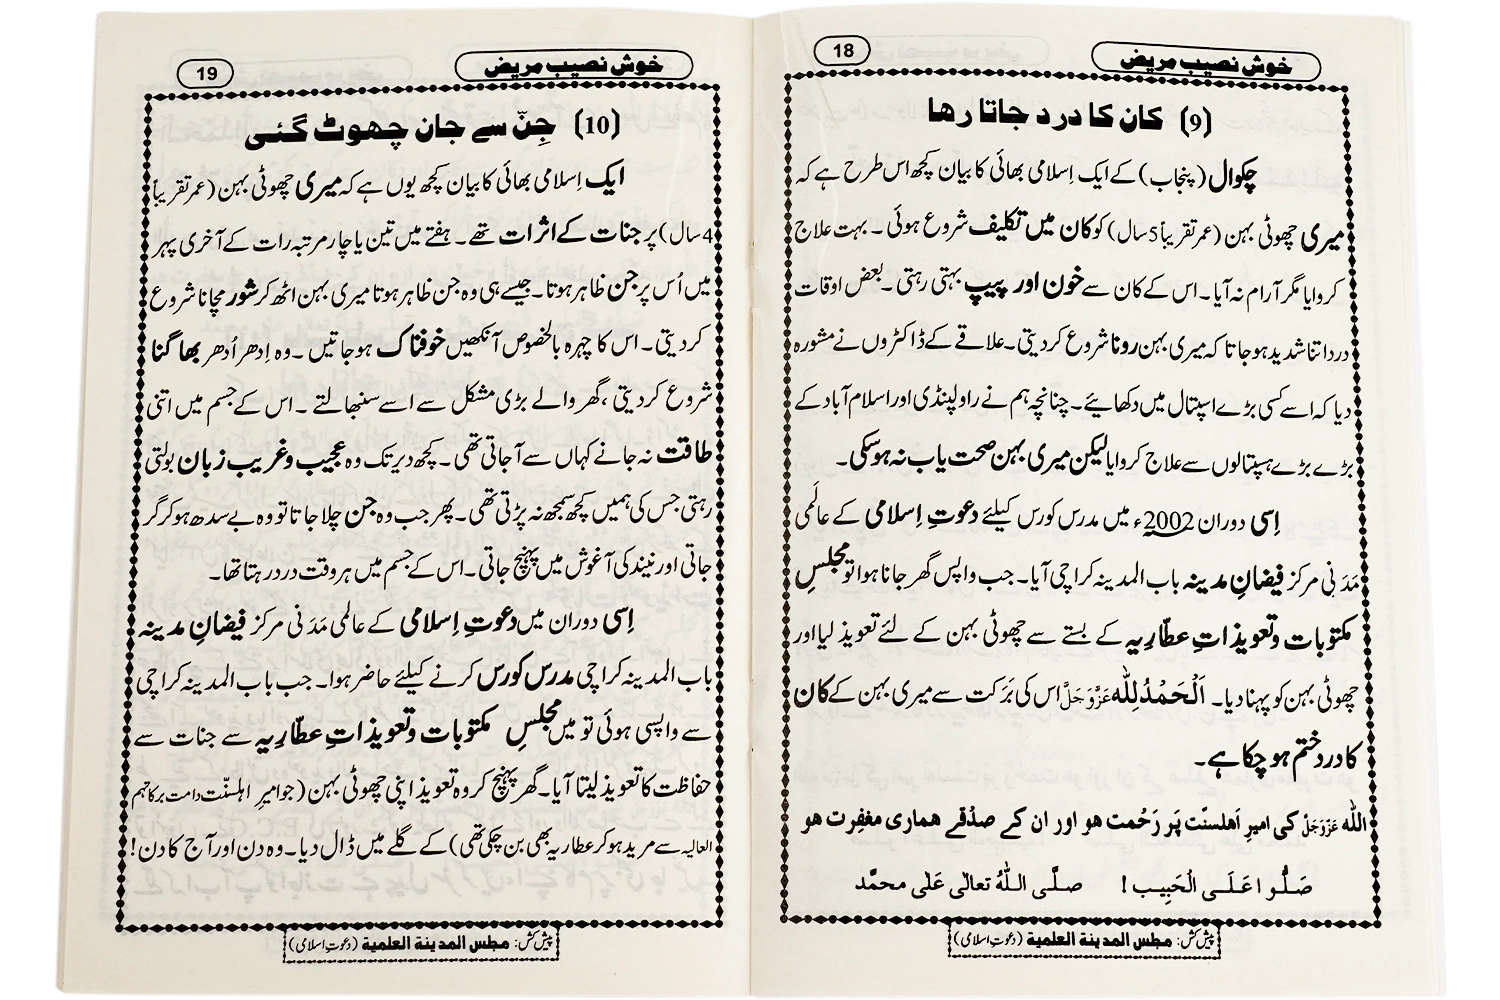 18
خوش نصیب مریض
(9) کان کا درد جاتا رھا
چکوال (پنجاب) کے ایک اِسلامی بھائی کا بیان کچھ اس طرح ہے کہ
میری چھوٹی بہن (عمر تقریباً 5 سال) کو کان میں تکلیف شروع ہوئی ۔ بہت علاج
کروایا مگر آرام نہ آیا۔ اس کے کان سے خون اور پیپ بہتی رہتی ۔ بعض اوقات
درد اتنا شدید ہو جاتا کہ میری بہن رونا شروع کر دیتی۔ علاقے کے ڈاکٹروں نے مشورہ
دیا کہ اسے کسی بڑے اسپتال میں دکھائیے۔ چنانچہ ہم نے راولپنڈی اور اسلام آباد کے
بڑے بڑے ہسپتالوں سے علاج کروایا لیکن میری بہن صحت یاب نہ ہوسکی۔
اِسی دوران 2002ء میں مدرس کورس کیلئے دعوتِ اِسلامی کے عالَمی
مَدَنی مرکز فیضانِ مدینہ باب المدینہ کراچی آیا۔ جب واپس گھر جانا ہوا تو مجلسِ
مکتوبات و تعویذاتِ عطّاریہ کے بستے سے چھوٹی بہن کے لئے تعویذ لیا اور
چھوٹی بہن کو پہنا دیا۔ اَلْحَمْدُلِلّٰه عَزَّوَجَلَّ اس کی بَرَکت سے میری بہن کے کان
کا درد ختم ہو چکا ہے۔
اللّٰه عَزَّوَجَلَّ کی امیرِ اَھلسنّت پَر رَحْمت ھو اور ان کے صدْقے ھماری مغفِرت ھو
صَلُّوا عَلَی الْحَبِیب ! صلَّی اللّٰهُ تعالٰی عَلٰی محمَّد
پیش کش: مجلس المدينة العلمية (دعوتِ اسلامی)
19
خوش نصیب مریض
(10) جِنّ سے جان چھوٹ گئی
ایک اِسلامی بھائی کا بیان کچھ یوں ہے کہ میری چھوٹی بہن (عمر تقریباً
4 سال) پر جنات کے اثرات تھے ۔ ہفتے میں تین یا چار مرتبہ رات کے آخری پہر
میں اُس پر جن ظاہر ہوتا۔ جیسے ہی وہ جن ظاہر ہوتا میری بہن اٹھ کر شور مچانا شروع
کردیتی۔ اس کا چہرہ بالخصوص آنکھیں خوفناک ہو جاتیں ۔ وہ اِدھر اُدھر بھاگنا
شروع کردیتی ،گھر والے بڑی مشکل سے اسے سنبھالتے ۔ اس کے جسم میں اتنی
طاقت نہ جانے کہاں سے آجاتی تھی ۔ کچھ دیر تک وہ عجیب و غریب زبان بولتی
رہتی جس کی ہمیں کچھ سمجھ نہ پڑتی تھی ۔ پھر جب وہ جن چلا جاتا تو وہ بے سدھ ہو کر گر
جاتی اور نیند کی آغوش میں پہنچ جاتی ۔ اس کے جسم میں ہر وقت درد رہتا تھا۔
اِسی دوران میں دعوتِ اِسلامی کے عالمی مَدَنی مرکز فیضانِ مدینہ
باب المدینہ کراچی مدرس کورس کرنے کیلئے حاضر ہوا۔ جب باب المدینہ کراچی
سے واپسی ہوئی تو میں مجلسِ مکتوبات و تعویذاتِ عطّاریہ سے جنات سے
حفاظت کا تعویذ لیتا آیا۔ گھر پہنچ کر وہ تعویذ اپنی چھوٹی بہن (جو امیرِ اہلسنّت دامت برکاتہم
العالیہ سے مرید ہو کر عطاریہ بھی بن چکی تھی) کے گلے میں ڈال دیا۔ وہ دن اور آج کا دن!
پیش کش: مجلس المدينة العلمية (دعوتِ اسلامی)